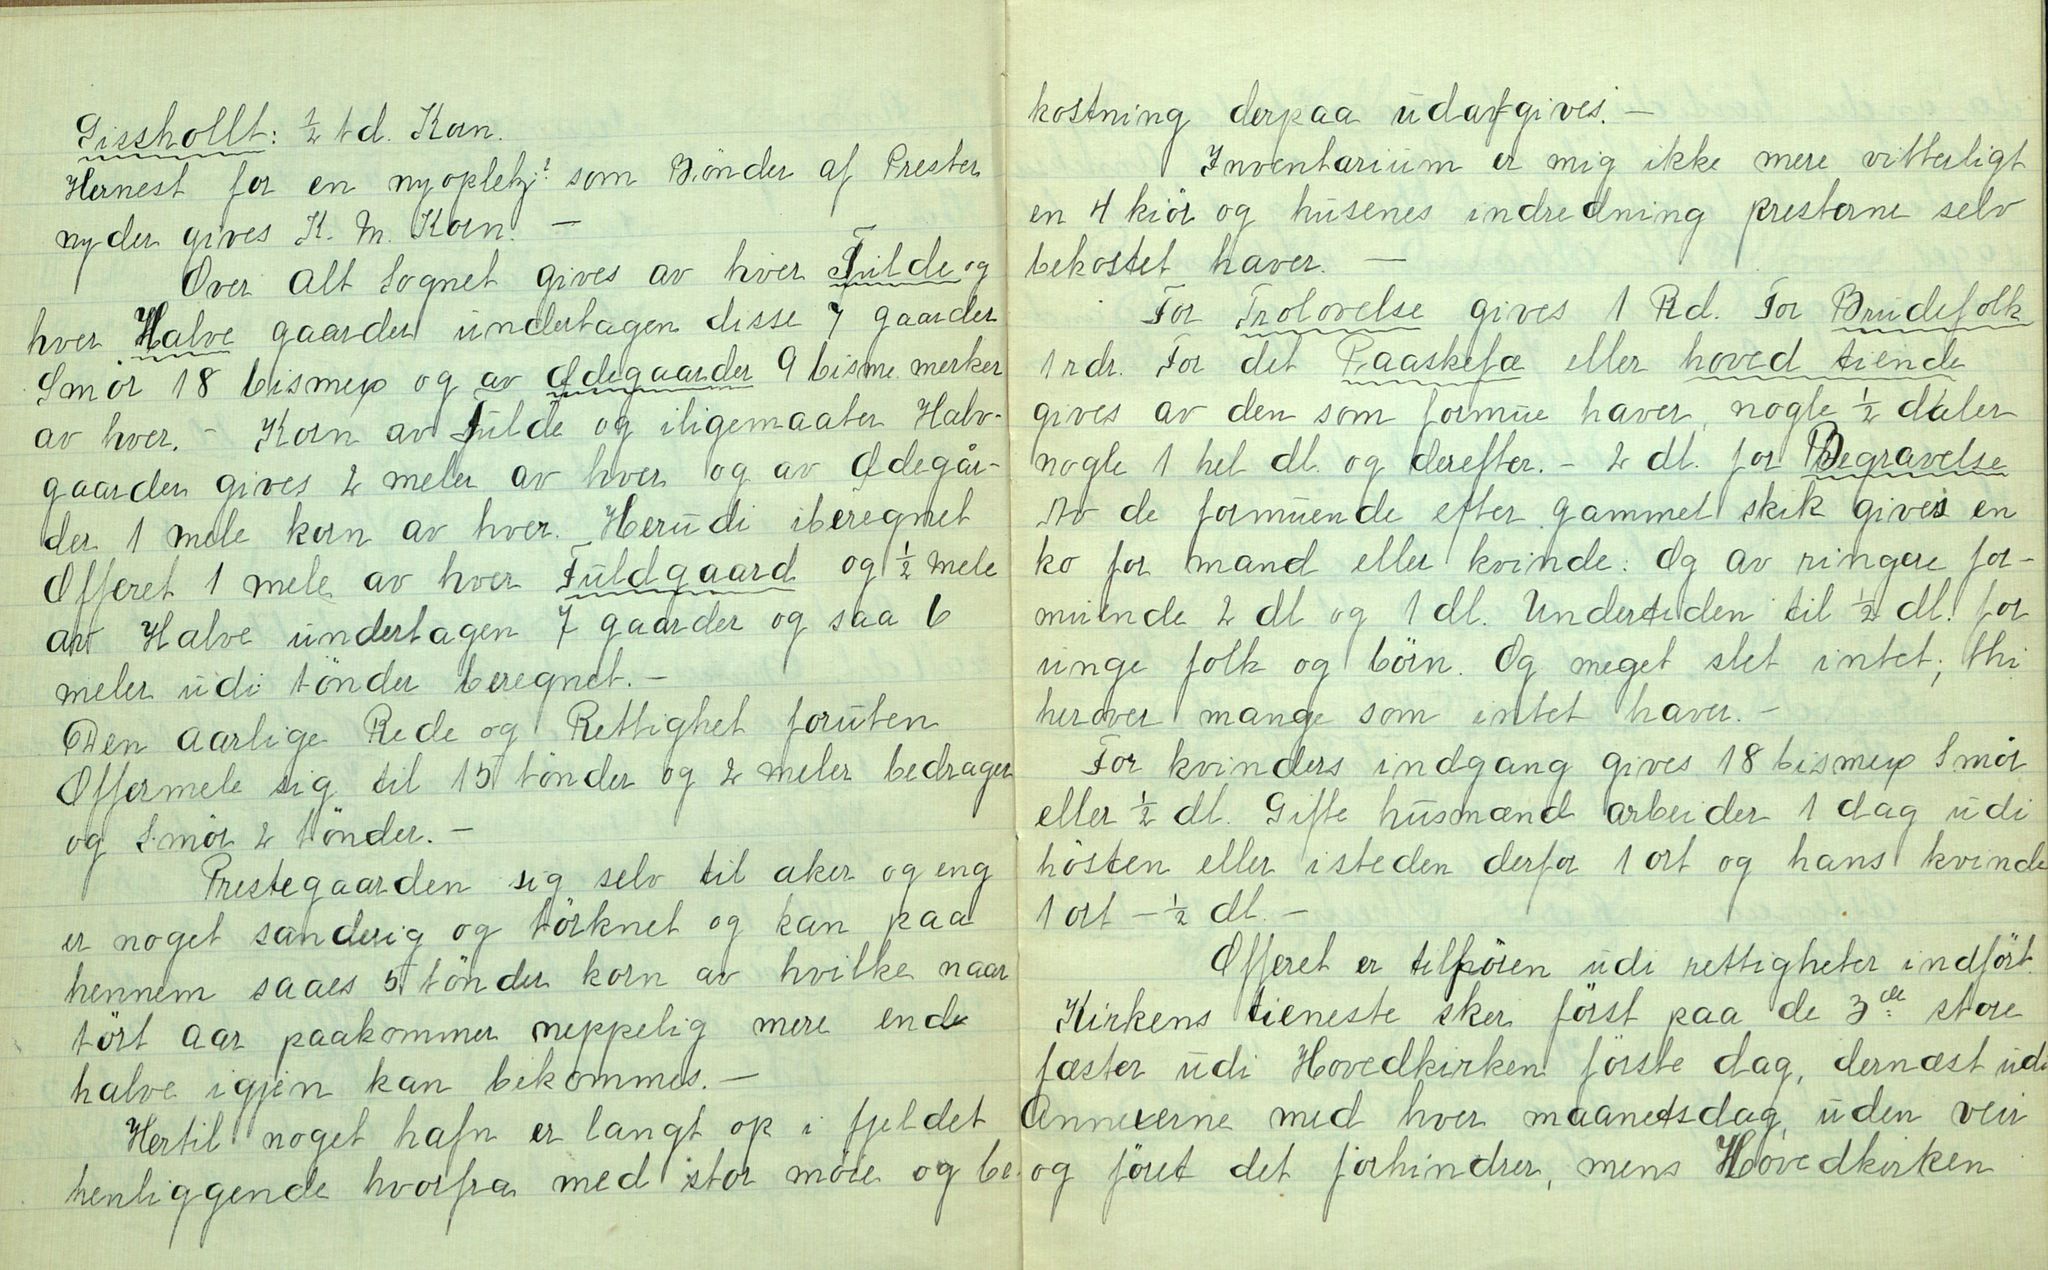 Gisshollt: ½ td. Korn.
Hernest for en nyopletzj? som Bönder af Presten
nyder gives K. M. Korn. —
Over alt Sognet gives av hver Fulde og
hver Halve gaarder undertagen disse 7 gaarder
Smör 18 bismerp og av Ødegaarder 9 bisme merker
av hver. - Korn av Fulde og iligemaater Halv-
gaarder gives 2 meler av hver og av Ødegår-
der 1 mele korn av hver. Herudi iberegnet
Offeret 1 mele av hver Fuldgaard og ½ mele
av Halve undertagen 7 gaarder og saa 6
meler udi tönder beregnet. —
Den aarlige Rede og Rettighet foruten
Offermele sig til 15 tönder og 2 meler bedrager
og Smör 2 tönder. —
Prestegaarden sig selv til aker og eng
er noget sanderig og törknet og kan paa
hennem saaes 5 tönder korn av hvilke naar
tört aar paakommer neppelig mere end
halve igjen kan bekommes. —
Hertil noget hafn er langt op i fjeldet
henliggende hvorfra med stor möie og be-
kostning derpaa udafgives. —
Inventarium er mig ikke mere vitterligt
en 4 kiör og husenes indredning presterne selv
bekostet haver. —
For Trolovelse gives 1 Rd. For Brudefolk
1 rdr. For det Paaskefæ eller hoved tiende
gives av den som formue haver, nogle ½ daler
nogle 1 hel dl. og derefter. - 2 dl. for Begravelse
Av de formuende efter gammel skik gives en
ko for mand eller kvinde. Og av ringere for-
muende 2 dl og 1 dl. Undertiden til ½ dl. for
unge folk og börn. Og meget slet intet; thi
herover mange som intet haver. -
For kvinders indgang gives 18 bismerp Smör
eller ½ dl. Gifte husmænd arbeider 1 dag udi
hösten eller isteden derfor 1 ort og hans kvinde
1 ort — ½ dl. —
Offeret er tilforen udi rettigheter indfört.
Kirkens tieneste sker först paa de 3de store
fæster udi Hovedkirken förste dag, dernæst udi
Annexerne med hver maanetsdag, uden veir
og föret det forhindrer, mens Hovedkirken